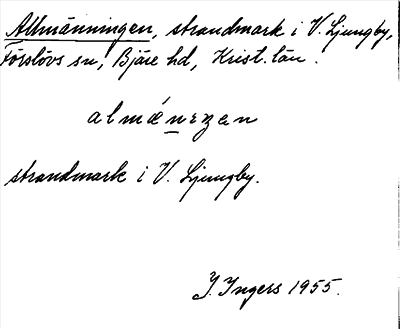 Allmänningen, strandmark i V. Ljungby,
Förslövs sn, Bjäre hd, Krist. län.
strandmark i V. Ljungby.
I. Ingers 1955.